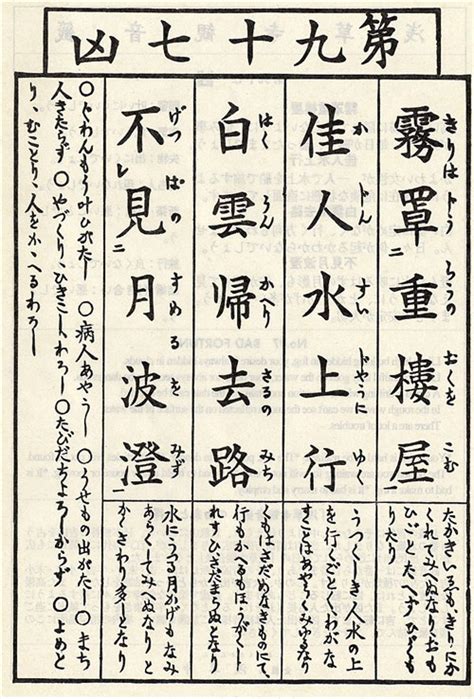 第九十七凶
霧罩ニ重樓屋
きりは とうろうの おくを こむ
佳人水上行
かじん すいじやうに ゆく
白雲帰去路
はくうん かへり さるの みち
不レ見ニ月波澄一
げつぱの すめるを みず
くれてみへぬなりおも
りたり
うつくしき人水の上
を行くごとくわが
ことはあやうくみゆるなり
くもはさだめなきものにて、
行もかへるも
さだまらぬとなり
水にうつる月かげもなみ
あらくてみへぬなりと
かくさわり多となり
〇ぐわんもう叶ひがたし 〇病人あやうし 〇うせもの出がたし 〇まち
人きたらず 〇やづくり、ひきこしわろし 〇たびだちよろしからず 〇よめと
り、むことり、人をかゝへるわろし